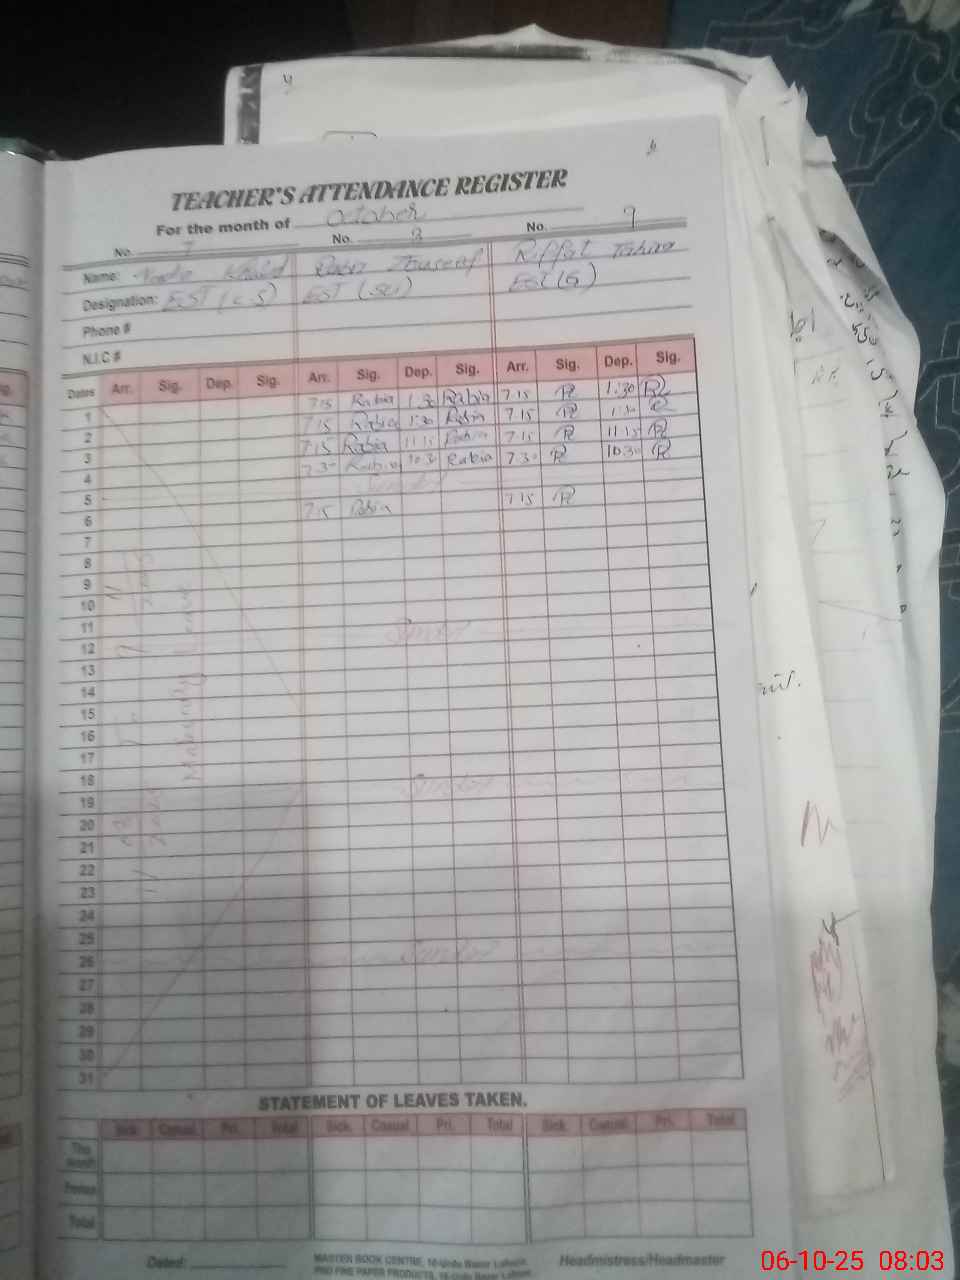 TEACHER'S ATTENDANCE REGISTER
For the month of October
No. 7 No. 8 No. 9
Name: Khalid Rabia Riffat
Designation: EST (C.S) EST (Sci) EST (G)
Phone #
N.I.C #
Dates Arr. Sig. Dep. Sig. Arr. Sig. Dep. Sig. Arr. Sig. Dep. Sig.
1 7:15 Rabia 1:30 Rabia 7:15 R 1:30 R
2 7:15 Rabia 1:30 Rabia 7:15 R 1:30 R
3 7:15 Rabia 11:15 Rabia 7:15 R 11:15 R
4 7:30 Rabia 10:30 Rabia 7:30 R 10:30 R
5 Sunday
6 7:15 Rabia 7:15 R
7
8
9
10
11
12 Sunday
13
14
15
16
17
18
19 Sunday
20
21
22
23
24
25
26 Sunday
27
28
29
30
31
Maternity Leave
STATEMENT OF LEAVES TAKEN.
Sick. Casual. Pri. Total Sick. Casual. Pri. Total Sick. Casual. Pri. Total
This Month
Total
Dated: MASTER BOOK CENTRE, 16-Urdu Bazar Lahore. Headmistress/Headmaster
PRO FINE PAPER PRODUCTS, 16-Urdu Bazar Lahore.
06-10-25 08:03